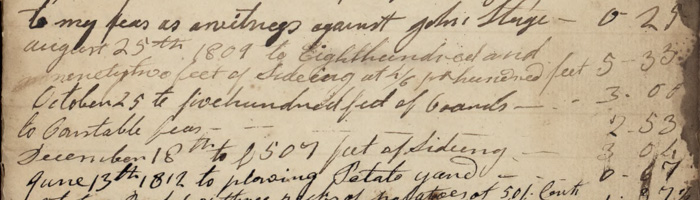 to my feas as a witness against John Stage - 0 25
august 25th 1809 to Eighthundred and
ninetytwo feet of Sideing at 6/ pr hundred feet 5-33
October 25 to fivehundred feet of boards - - - 3-00
to Constable feas - - - 2-53
December 18th to 507 feet of Sideing - - 3 04
June 13th 1812 to plowing Potato yard - - 0-67
of potatoes at 50 Cents